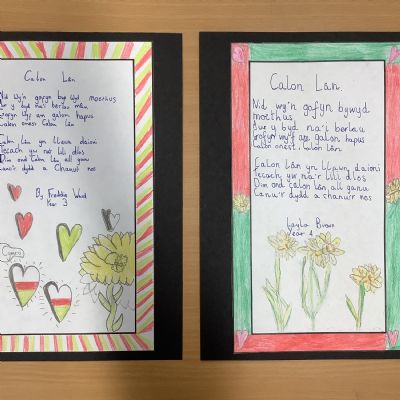 Calon Lân
Nid wy'n gofyn byw lwyd moethus
Aur y byd na'i berlau mân
Gofyn wyf am galon hapus
Calon onest Calon lân
Calon lân yn llawn daioni
Tecach yw na'r lili dlos
Dim ond calon lân all ganu
Canu'r dydd a Chanu'r nos
By Freddie
Year 3
Cymru
Calon Lân.
Nid wy'n gofyn bywyd
moethus
Aur y byd na'i berlau
gofyn wyf am galon hapus
Calon onest, Calon lân.
Calon lân yn llawn daioni
Tecach yw na'r lili dlos
Dim ond calon lân, all ganu
Canu'r dydd a chanu'r nos
Layla Brown
Year 4